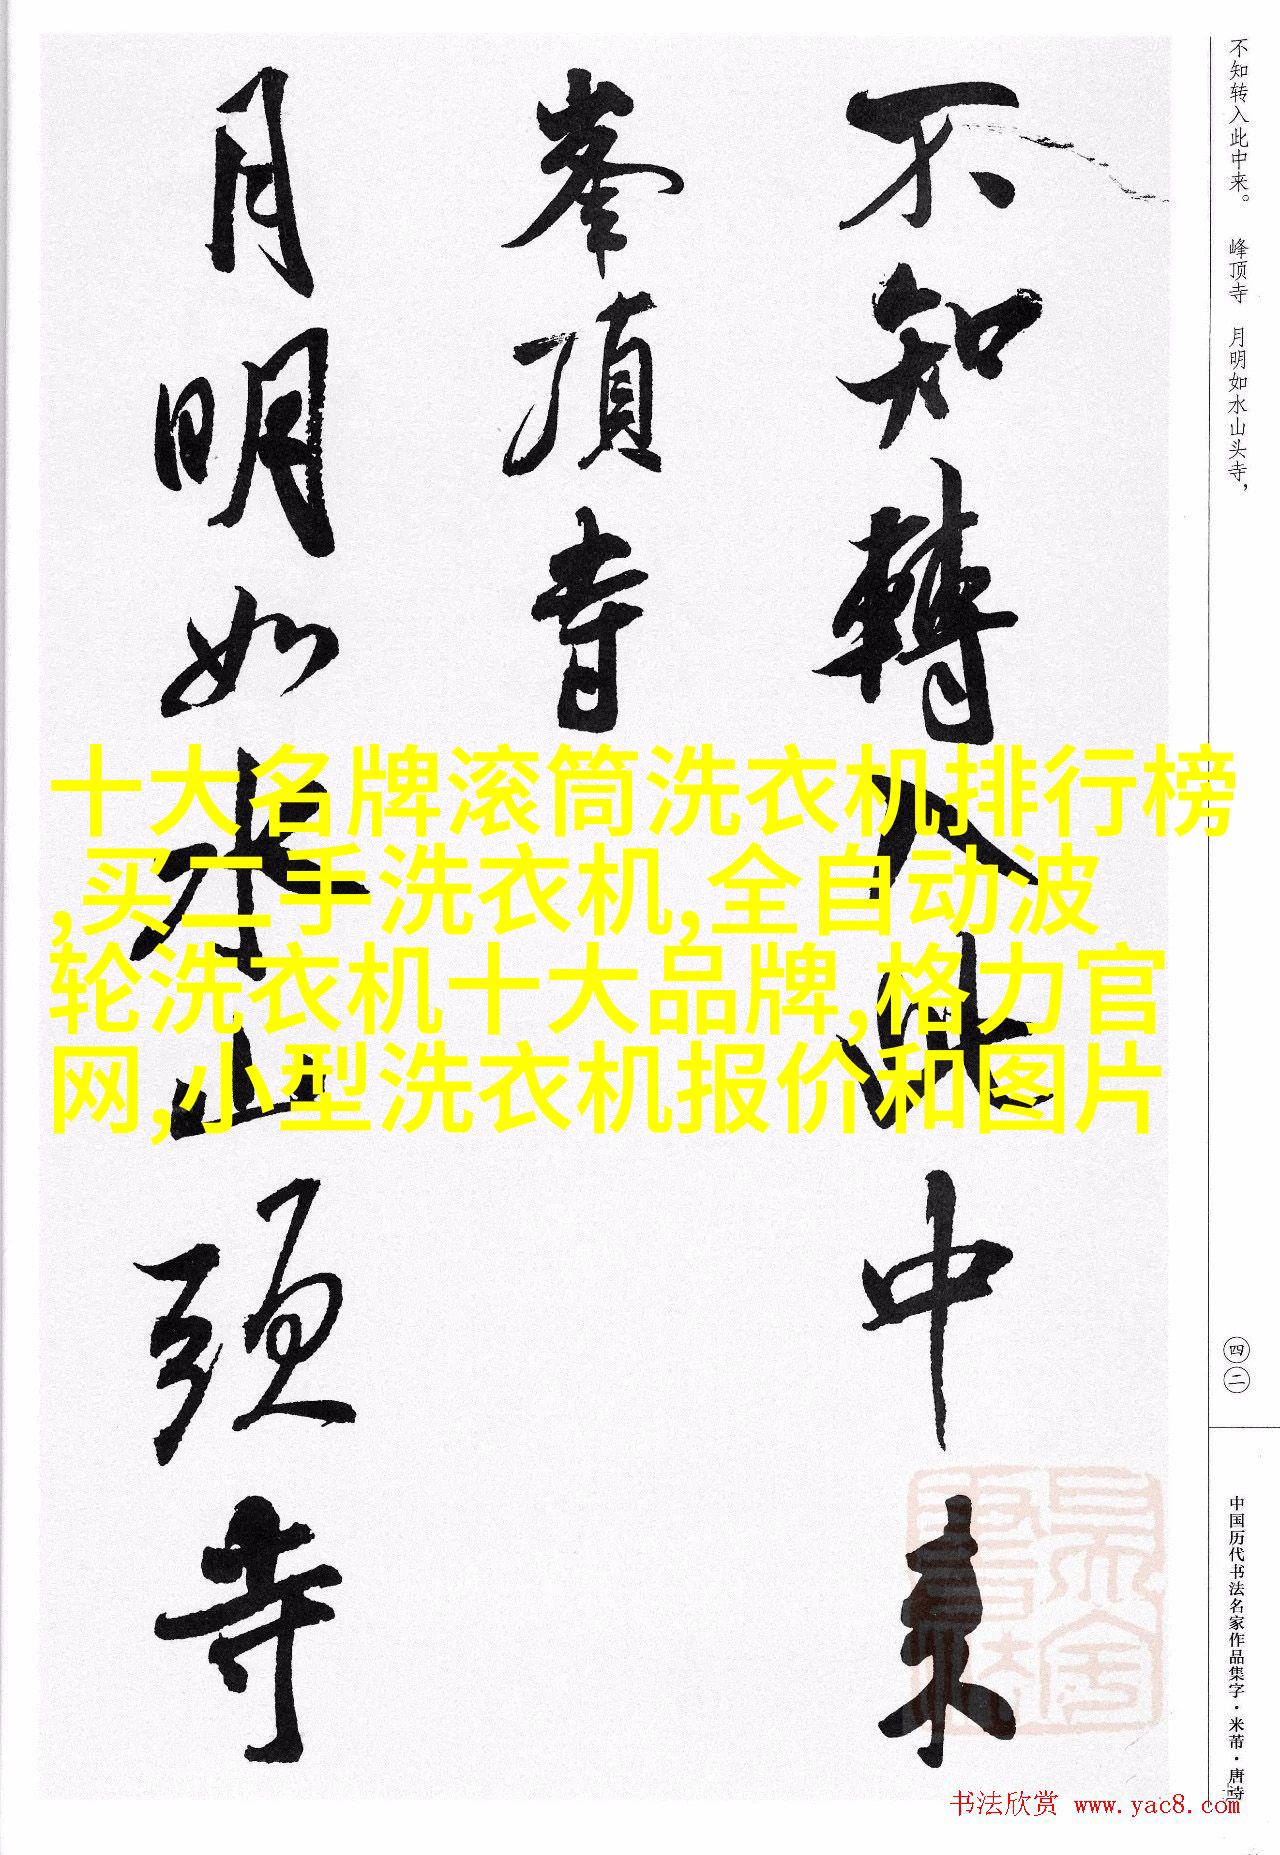 不知转入此中来。 峰顶寺 月明如水山头寺，
不知轉入此中来
峯頂寺
月明如水山頭寺
十大名牌滚筒洗衣机排行榜
,买二手洗衣机,全自动波
轮洗衣机十大品牌,格力官
网,小型洗衣机报价和图片
四二
中国历代书法名家作品集字·米芾·唐诗
书法欣赏 www.yac8.com